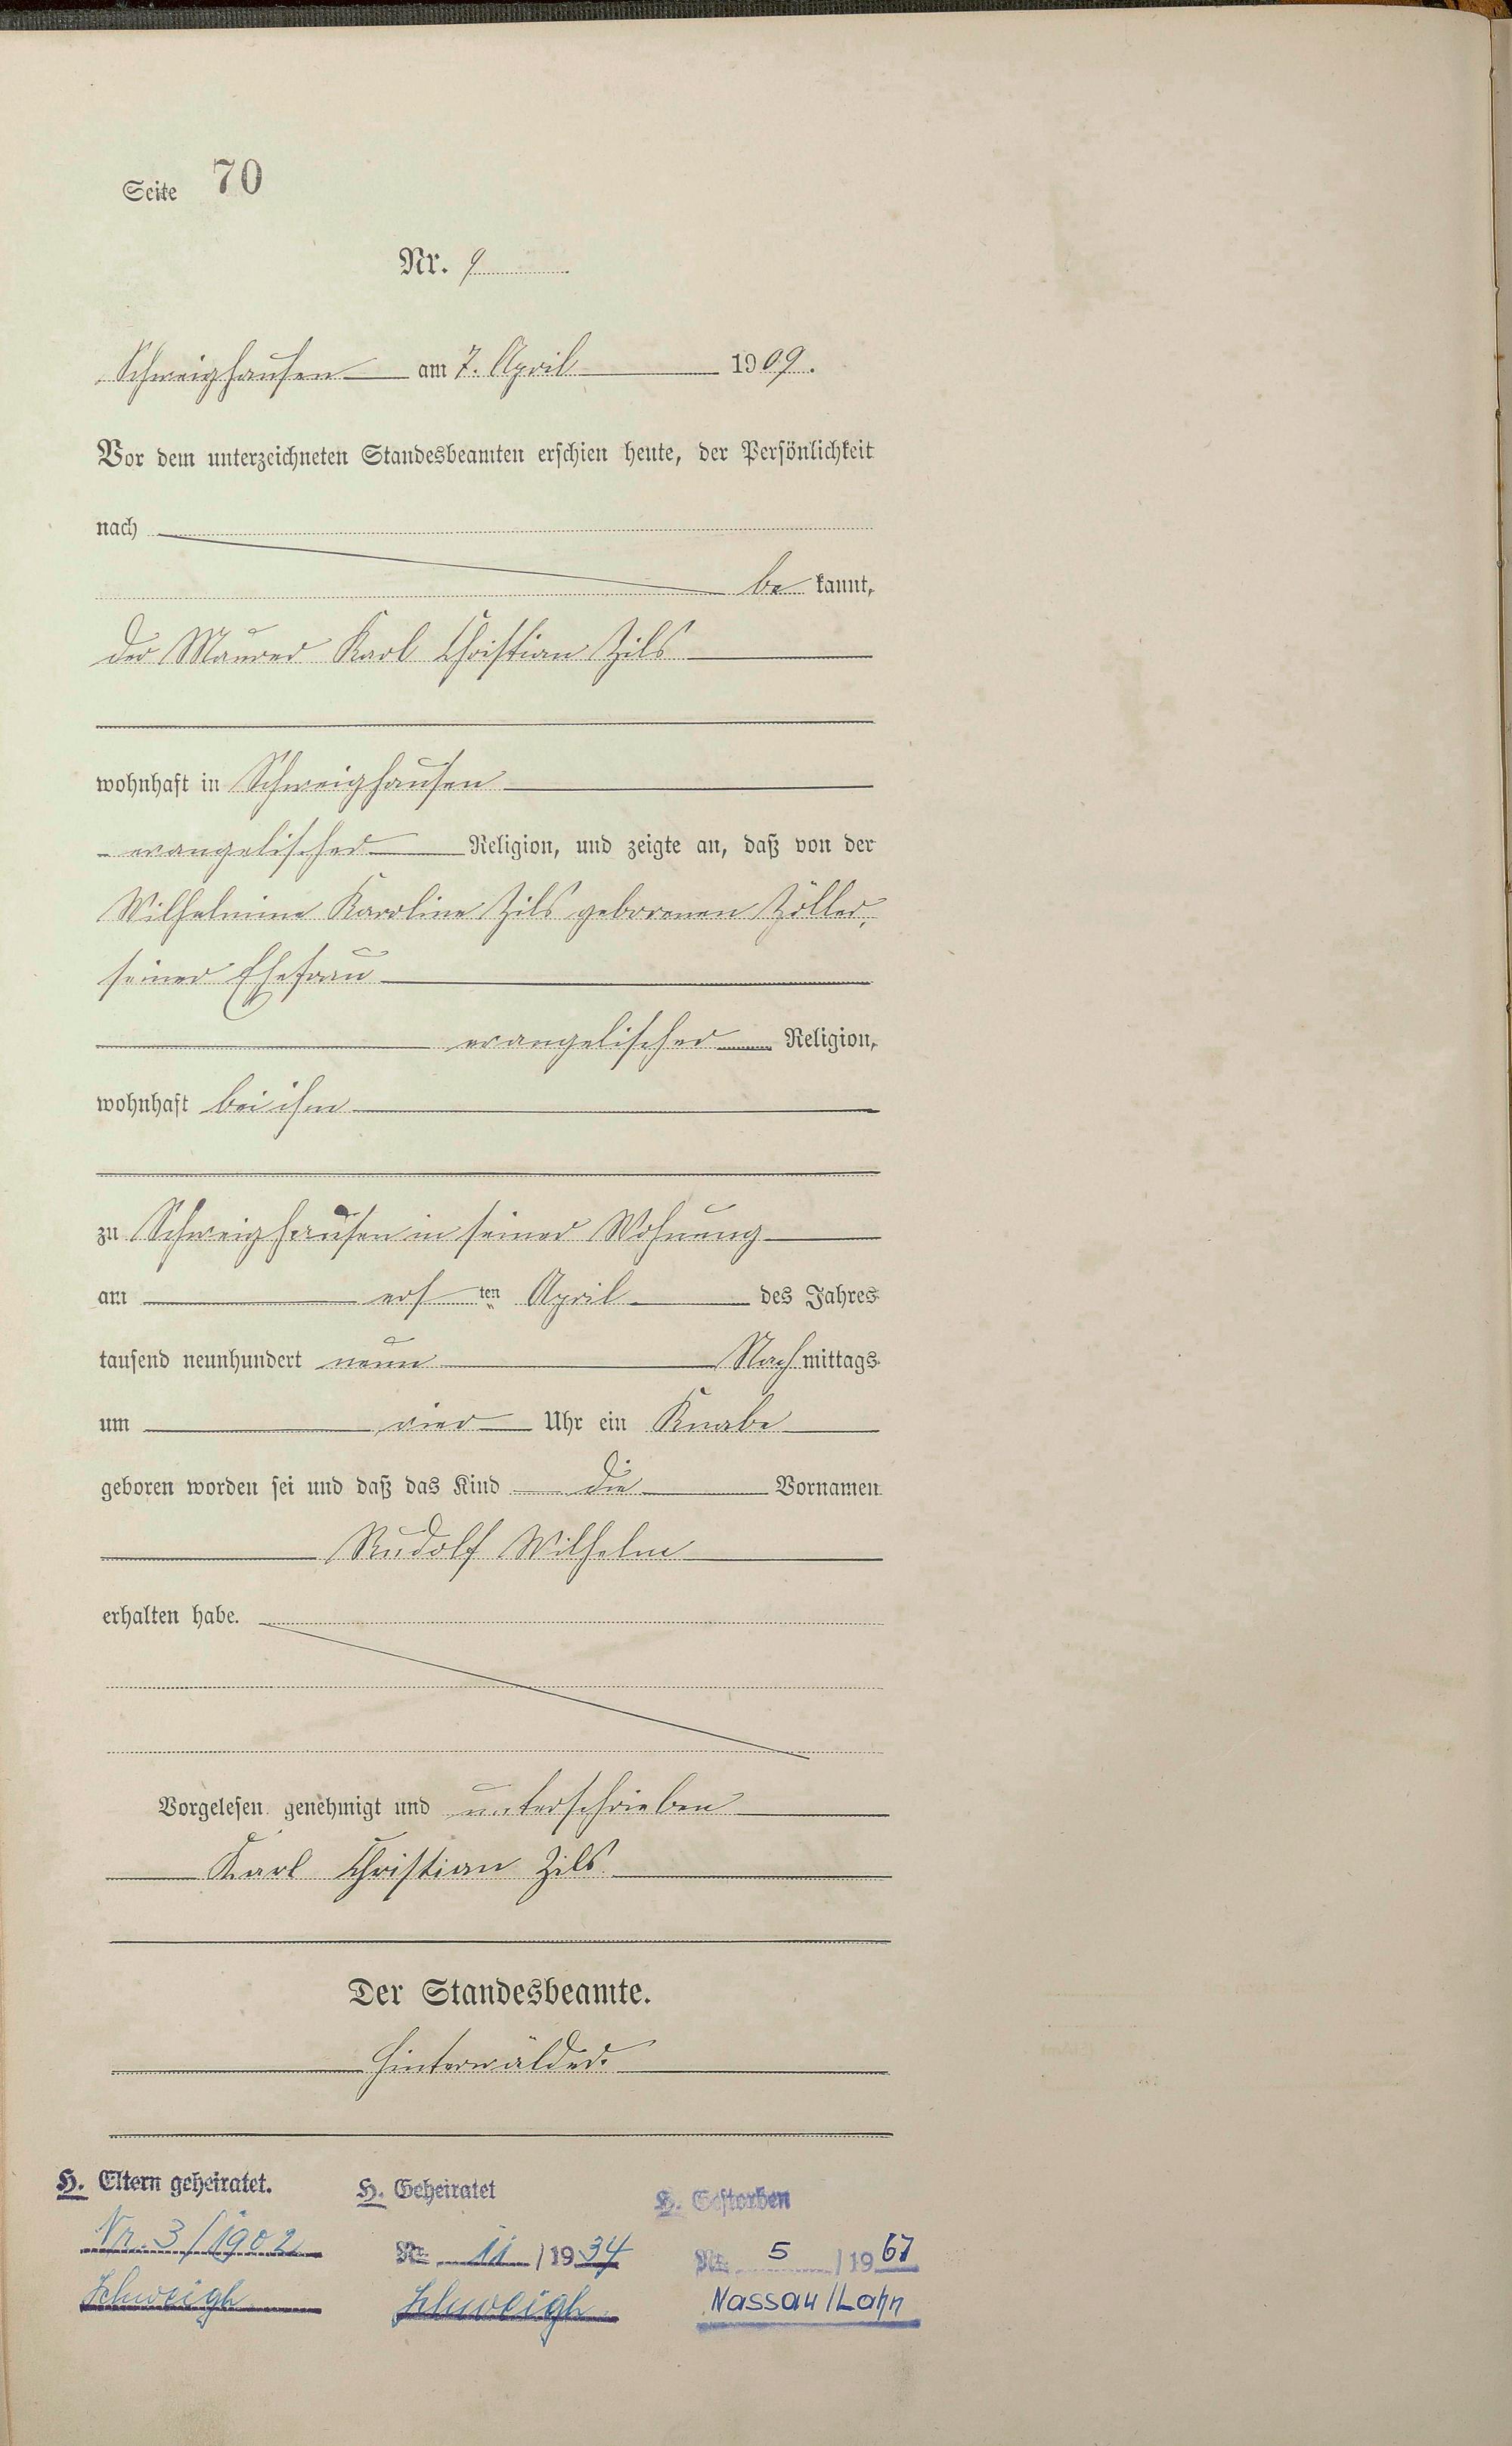 Seite 70
Nr. 9
Schweighausen am 7. April 1909.
Vor dem unterzeichneten Standesbeamten erschien heute, der Persönlichkeit
nach
be kannt,
der Maurer Karl Christian Zils
wohnhaft in Schweighausen
evangelischer Religion, und zeigte an, daß von der
Wilhelmine Karoline Zils geborenen Zöller,
seiner Ehefrau
evangelischer Religion,
wohnhaft bei ihm
zu Schweighausen in seiner Wohnung
am ersten April des Jahres
tausend neunhundert neun Nachmittags
um vier Uhr ein Knabe
geboren worden sei und daß das Kind die Vornamen
Rudolf Wilhelm
erhalten habe.
Vorgelesen, genehmigt und unterschrieben
Karl Christian Zils
Der Standesbeamte.
Hinterwälder.
H. Eltern geheiratet. H. Geheiratet H. Gestorben
Nr. 3/1902 Nr. 11/1934 Nr. 5/1967
Schweigh Schweigh Nassau/Lahn